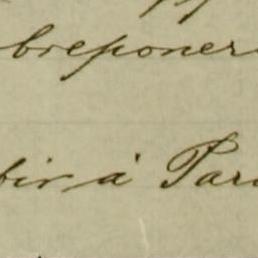 breponer
bir á Par